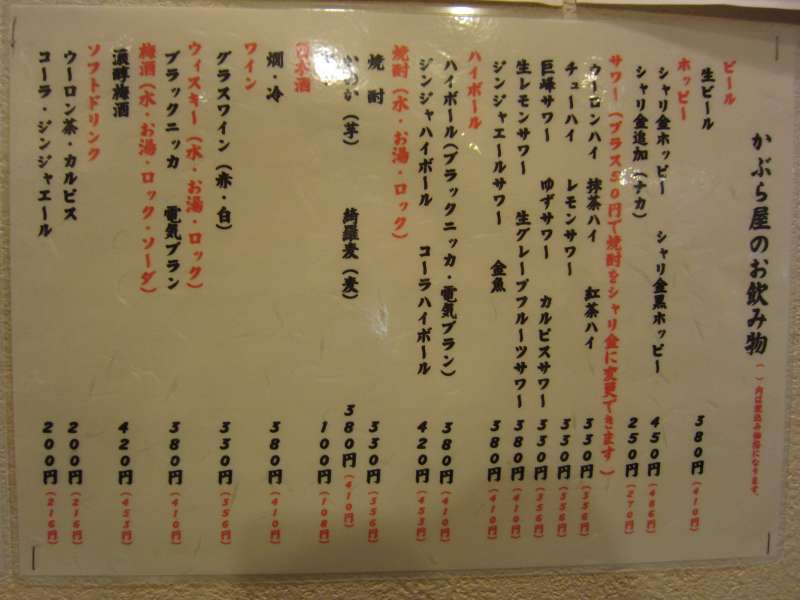 かぶら屋のお飲み物（ ）内は税込み価格になります。
ビール
生ビール 380円（410円）
ホッピー
シャリ金ホッピー シャリ金黒ホッピー 450円（486円）
シャリ金追加（ナカ） 250円（270円）
サワー（プラス50円で焼酎をシャリ金に変更できます）
ウーロンハイ 抹茶ハイ 紅茶ハイ 330円（356円）
チューハイ レモンサワー 330円（356円）
巨峰サワー ゆずサワー カルピスサワー 330円（356円）
生レモンサワー 生グレープフルーツサワー 380円（410円）
ジンジャエールサワー 金魚 380円（410円）
ハイボール
ハイボール（ブラックニッカ・電気ブラン） 380円（410円）
ジンジャハイボール コーラハイボール 420円（453円）
焼酎（水・お湯・ロック）
焼酎 330円（356円）
（芋） 綺羅麦（麦） 380円（410円）
100円（108円）
日本酒
燗・冷 380円（410円）
ワイン
グラスワイン（赤・白） 330円（356円）
ウィスキー（水・お湯・ロック）
ブラックニッカ 電気ブラン 380円（410円）
梅酒（水・お湯・ロック・ソーダ）
濃醇梅酒 420円（453円）
ソフトドリンク
ウーロン茶・カルピス 200円（216円）
コーラ・ジンジャエール 200円（216円）